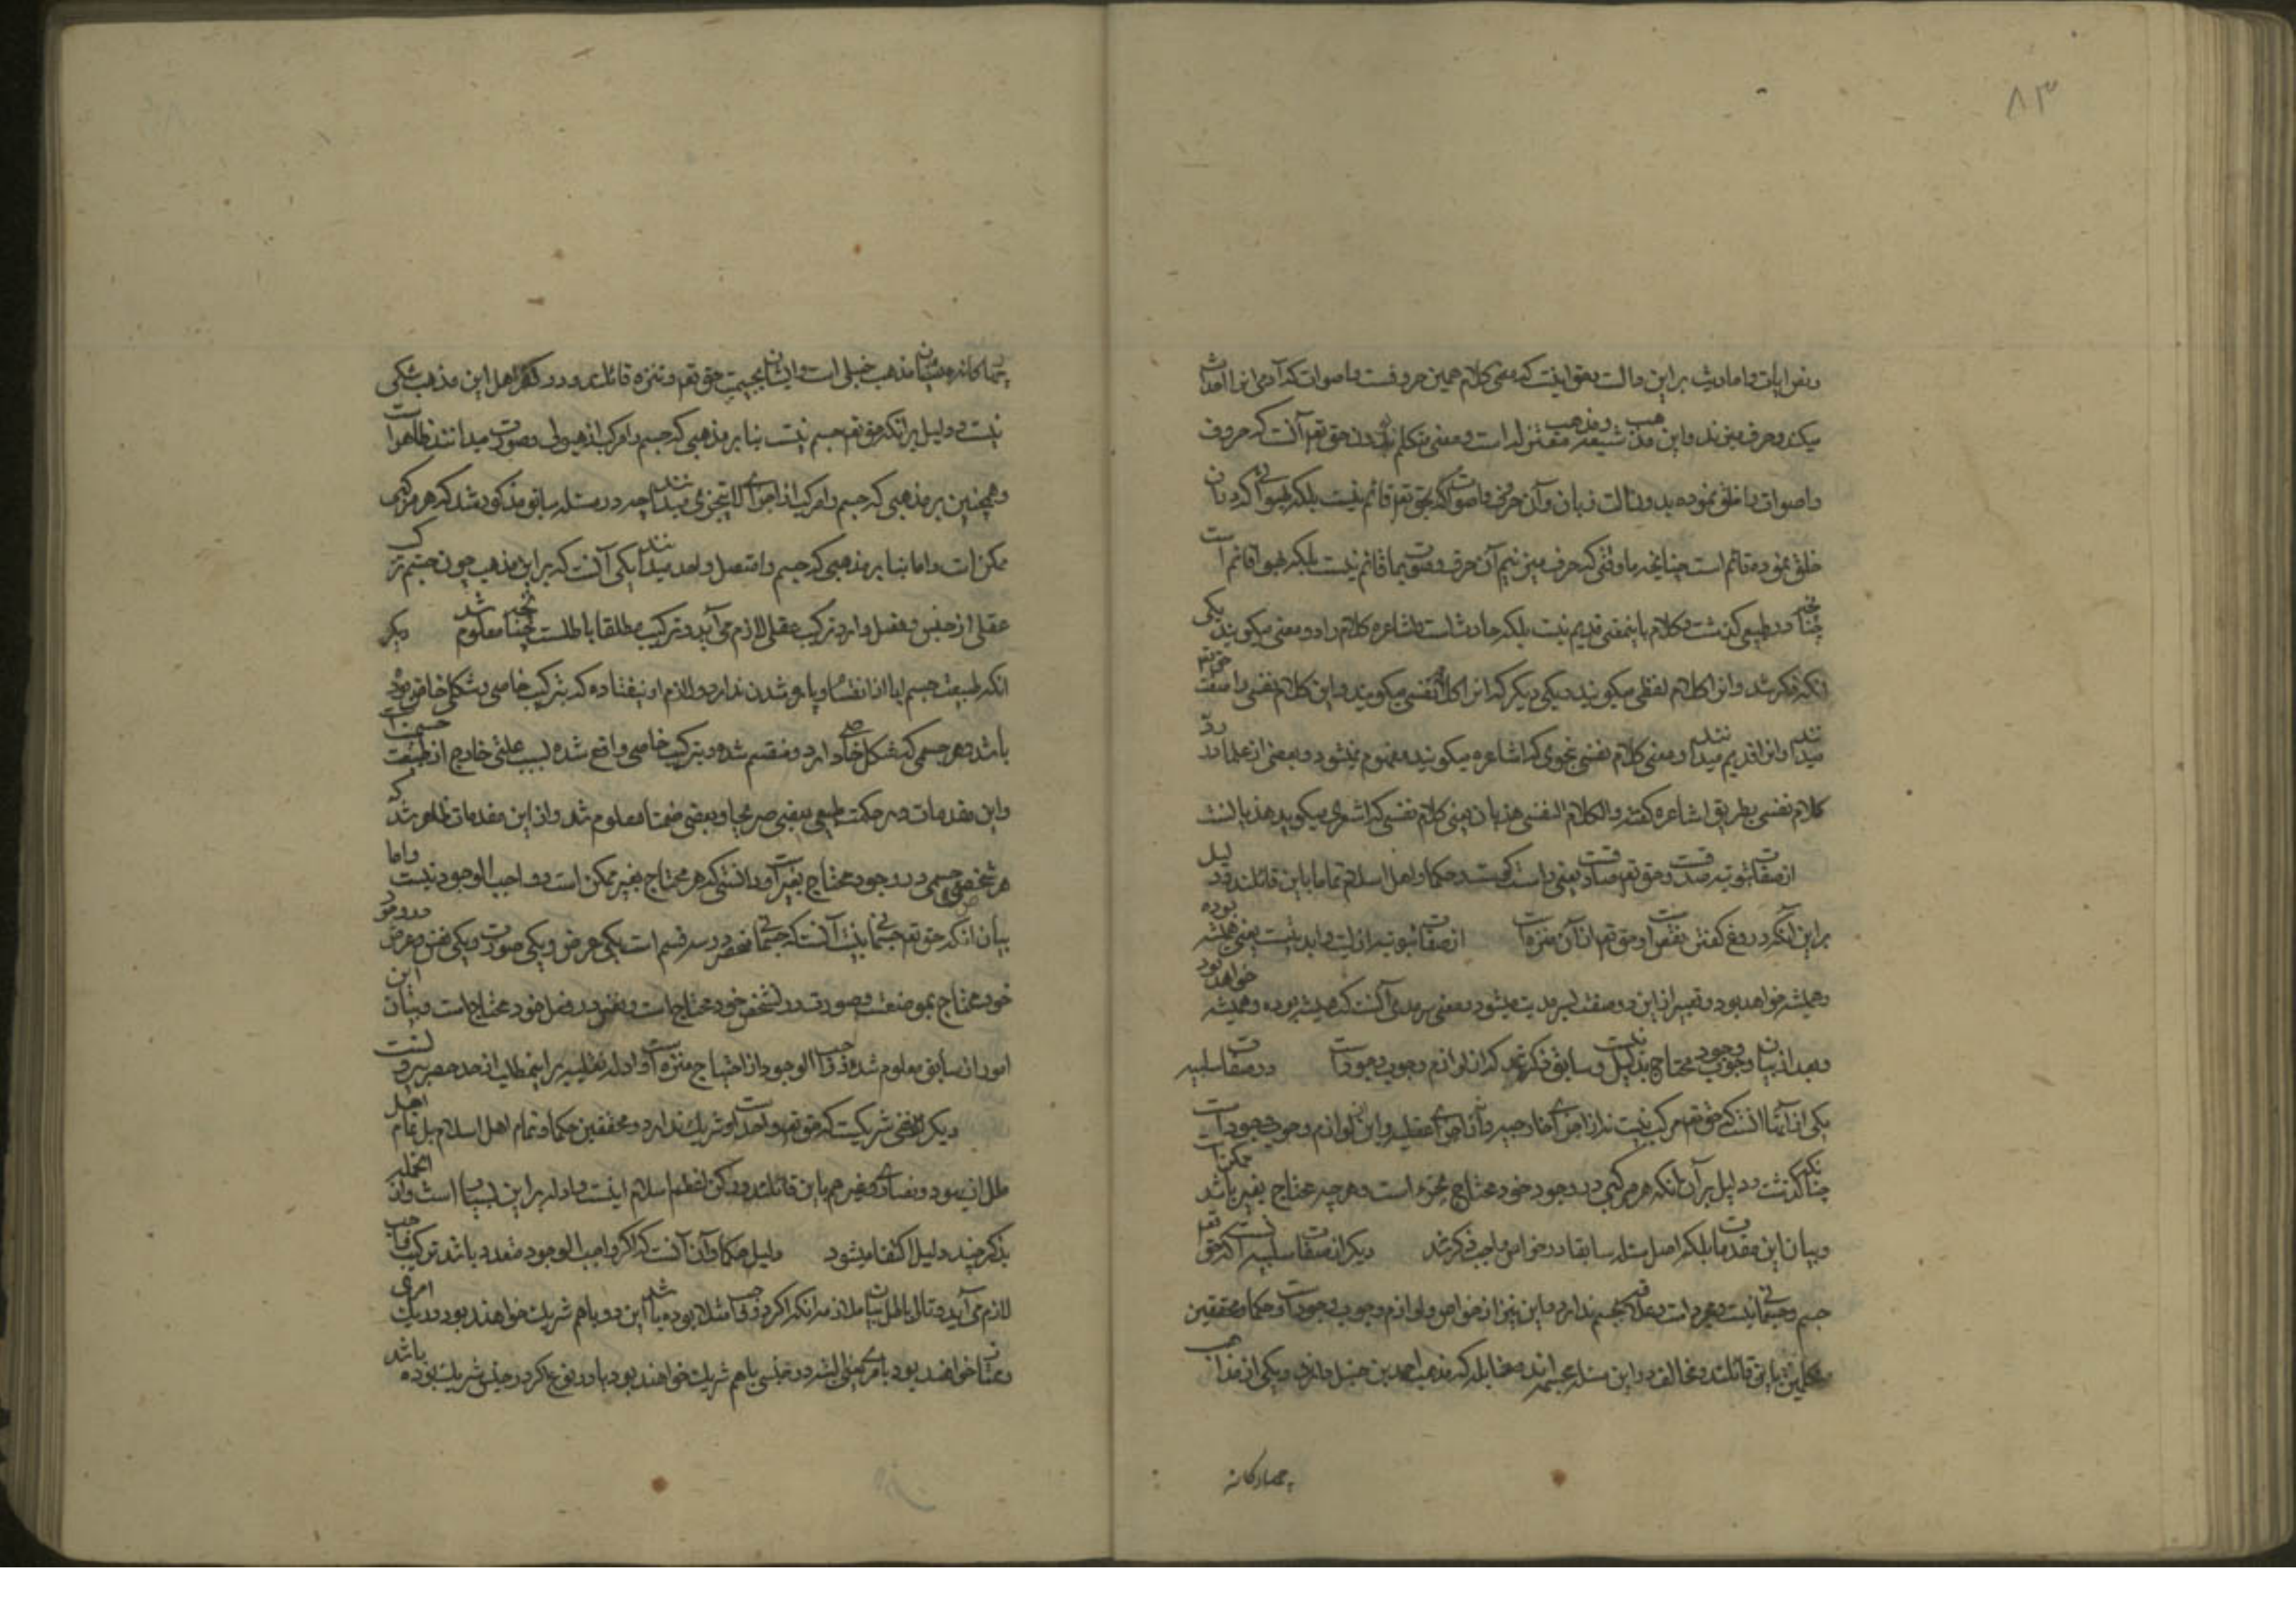 ۸۳
وبعض ایات واحادیث بر این دالست وحق اینست که معنی کلام همین حروفست واصوات که آدمی انرا احداث
میکند وحرف میزند واین مذهب شیعه ومذهب معتزله است ومعنی متکلم بودن حق تعم آنست که حروف
واصوات را خلق نموده بدون الت زبان وآن حرف واصوات بحق تعم قائم نیست بلکه بهوائی که در آن
خلق نموده قائم است چنانچه ما وقتی که حرف میزنیم آن حرف وصوت بما قائم نیست بلکه بهوا قائم است
چنانچه در طبیعی گذشت وکلام باینمعنی قدیم نیست بلکه حادث است واشاعره کلام را دو معنی میکویند یکی
انکه ذکر شد وانرا کلام لفظی میکویند ویکی دیکر که انرا کلام نفسی میکویند واین کلام نفسی را صفت حق تعم
میدانند وانرا قدیم میدانند ومعنی کلام نفسی بنحوی که اشاعره میکویند مفهوم نمیشود وبعضی از علما در ردّ
کلام نفسی بطریق اشاعره کفته والکلام النفسی هذیان یعنی کلام نفسی که اشعری میکوید هذیانست
از صفات ثبوتیه صدقست وحق تعم صادقست یعنی راست کو هست وحکما واهل اسلام تماما باین قائلند ودلیل
بر این آنکه دروغ کفتن نقص است وحق تعم از آن منزه است از صفات ثبوتیه ازلیت وابدیتست یعنی همیشه بوده
وهمیشه خواهد بود وتعبیر از این دو صفت بسرمدیت میشود ومعنی سرمدی آنست که همیشه بوده وهمیشه خواهد بود
وبعد از بیان وجوب وجود محتاج بدلیل نیست وسابق ذکر شد که از لوازم وجوب وجود است ودر صفات سلبیه
یکی از آنها انست که حق تعم مرکب نیست نه از اجزای خارجیه ونه از اجزای عقلیه واین از لوازم وجوب وجود است
چنانکه گذشت ودلیل بر آن انکه هر مرکبی در وجود خود محتاج بجزء است وهر چه محتاج بغیر باشد ممکن است
وبیان این مقدمات بلکه اصل مسئله سابقا در خواص واجب ذکر شد دیکر از صفات سلبیه انست که حق تعم
جسم وجسمانی نیست ومجرد است وعلاقه بجسم ندارد واین نیز از خواص ولوازم وجوب وجود است وحکما ومحققین
متکلمین باین قائلند ومخالف در این مسئله مجسمه اند وحنابله که مذهب احمد بن حنبل دارند ویکی از مذاهب
چهارکانه
چهارکانه سنیان مذهب حنبلی است وایشان بجسمیت حق تعم وتنزه قائلند ودر کفر اهل این مذهب شکی
نیست ودلیل بر انکه حق تعم جسم نیست بنا بر مذهبی که جسم را مرکب از هیولی وصورت میدانند ظاهر است
وهمچنین بر مذهبی که جسم را مرکب از اجزای لا یتجزی میدانند چه در مسئله سابق مذکور شد که هر مرکبی
ممکن است واما بنا بر مذهبی که جسم را متصل واحد میدانند یکی آنست که بر این مذهب چون جسم ترکب
عقلی از جنس وفصل دارد ترکیب عقلی لازم می آید وترکیب مطلقا باطلست چنانچه معلوم شد دیکر
انکه طبیعت جسم ابا از انقسام وپاره شدن ندارد ولازم او نیفتاده که بترکیب خاصی وشکل خاص موجود
باشد وهر جسمی که بشکل خاصی دارد ومنقسم شده وبترکیب خاصی واقع شده بسبب علتی خارج از طبیعت جسم است
واین مقدمات در حکمت طبیعی بعضی صریحا وبعضی ضمنا معلوم شد واز این مقدمات ظاهر شد که
هر شخصی جسمی در وجود محتاج بغیر است ودانستی که هر محتاج بغیر ممکن است وواجب الوجود نیست واما
بیان انکه حق تعم جسمانی نیست آنست که جسمانی منحصر در سه قسم است یکی عرض ویکی صورت ویکی نفس وعرض در وجود
خود محتاج بموضعست وصورت در تشخص خود محتاج است ونفس در فعل خود محتاج است وبیان این
امور از سابق معلوم شد وواجب الوجود از احتیاج منزه است وادله نقلیه بر اینمطلب از حد حصر بیرونست
دیکر نفی شریکست که حق تعم واحد است وشریک ندارد ومحققین حکما وتمام اهل اسلام بل تمام اهل
ملل از یهود ونصاری وغیرهم باین قائلند ورکن اعظم اسلام اینست وادله بر این بسیار است واز انجمله
بذکر چند دلیل اکتفا میشود دلیل حکما وآن آنست که اکر واجب الوجود متعدد باشد ترکیب واجب
لازم می آید وتالی باطل بیان ملازمه انکه اکر دو واجب مثلا بوده باشد این دو با هم شریک خواهند بود در یک امری
وممتاز خواهند بود بامری مثل انکه در جنسی با هم شریک خواهند بود یا در نوع اکر در جنس شریک بوده باشند